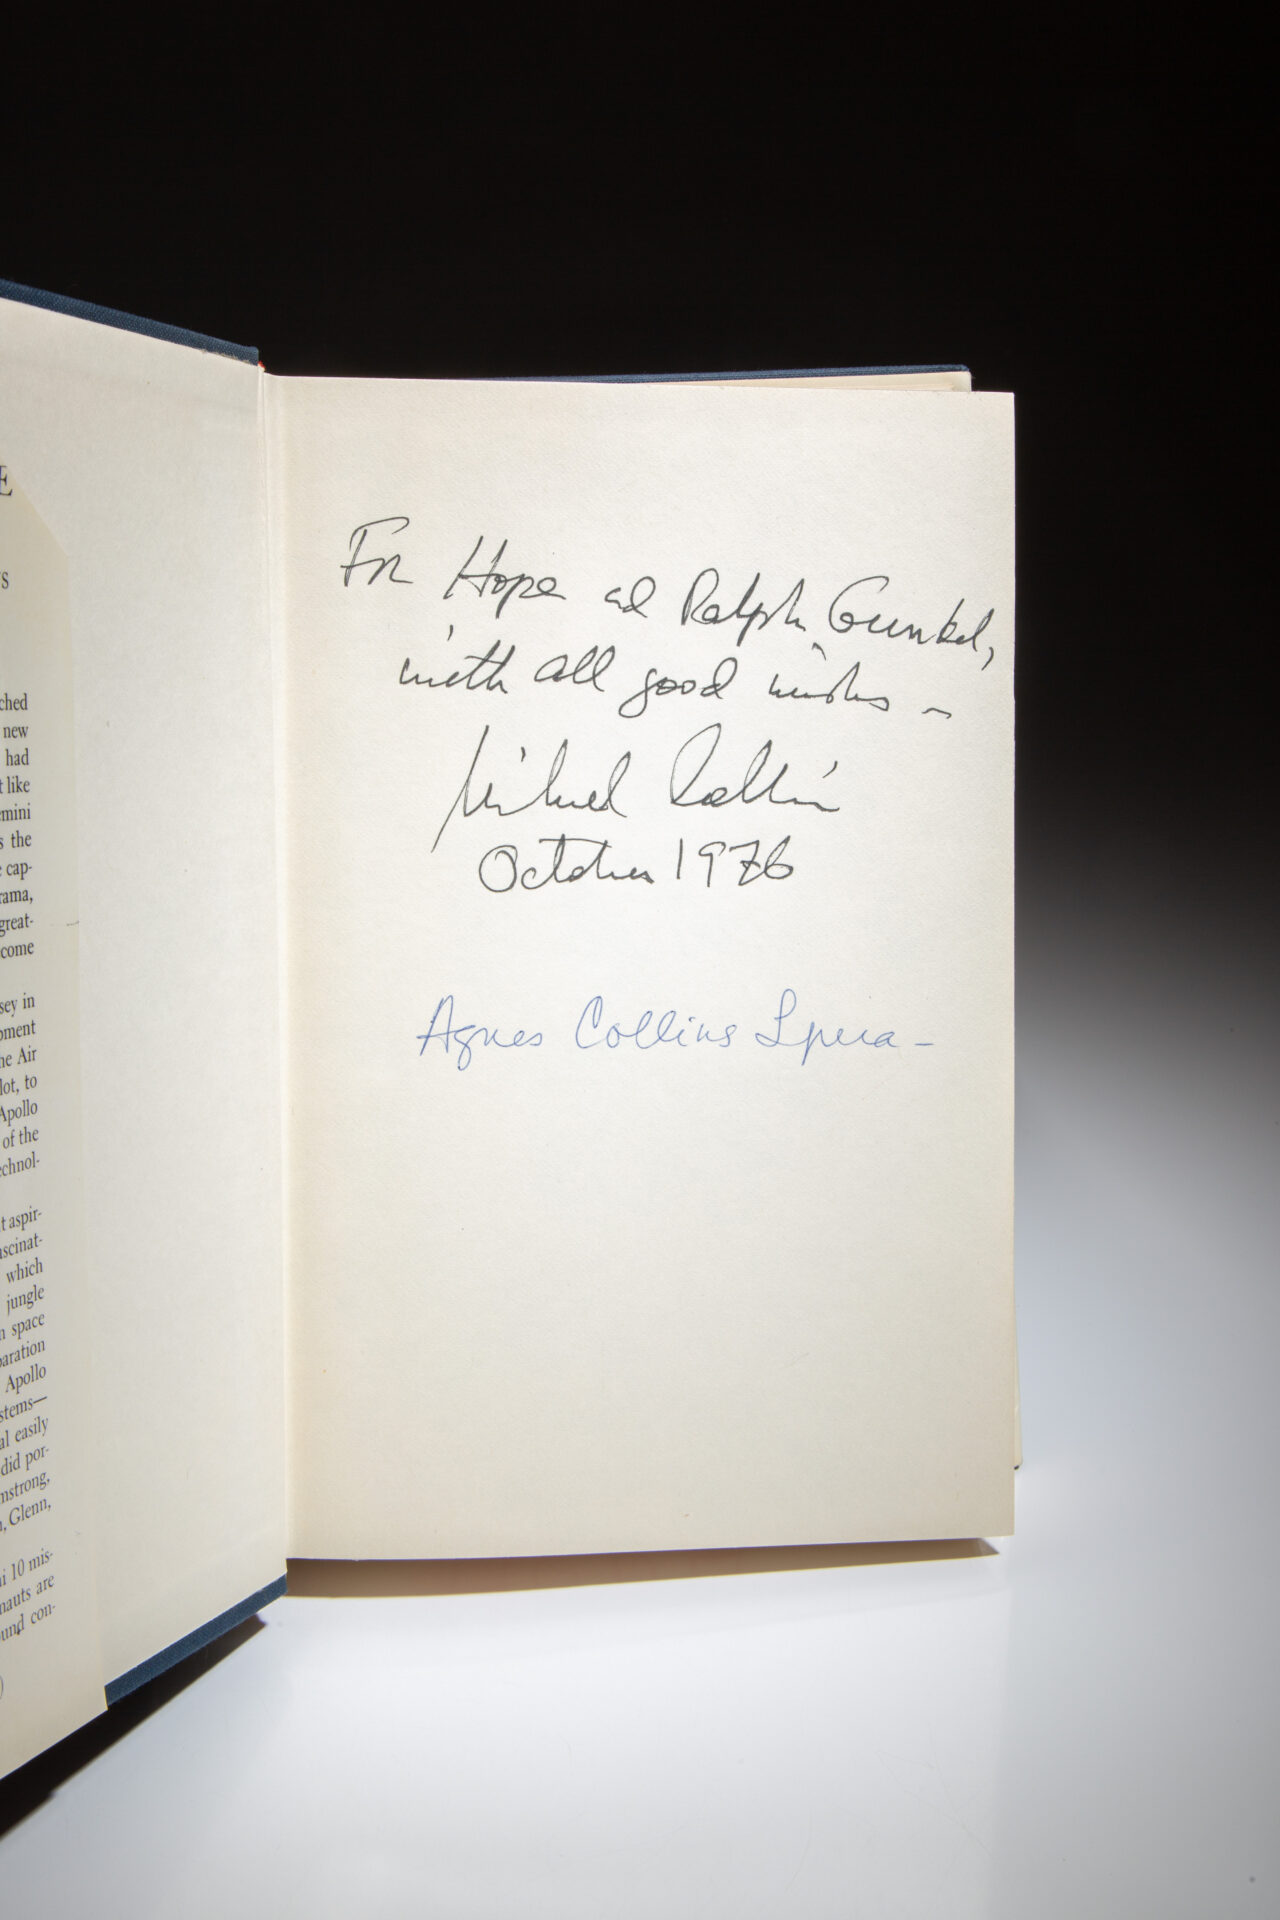 E
S
ched
new
had
t like
emini
s the
e cap-
rama,
great-
come
sey in
pment
he Air
lot, to
Apollo
of the
echnol-
t aspir-
ascinat-
which
jungle
n space
paration
Apollo
stems—
al easily
did por-
mstrong,
n, Glenn,
i 10 mis-
nauts are
und con-
)
For Hope and Ralph Gunkel,
with all good wishes –
Michael Collins
October 1976
Agnes Collins Spera –